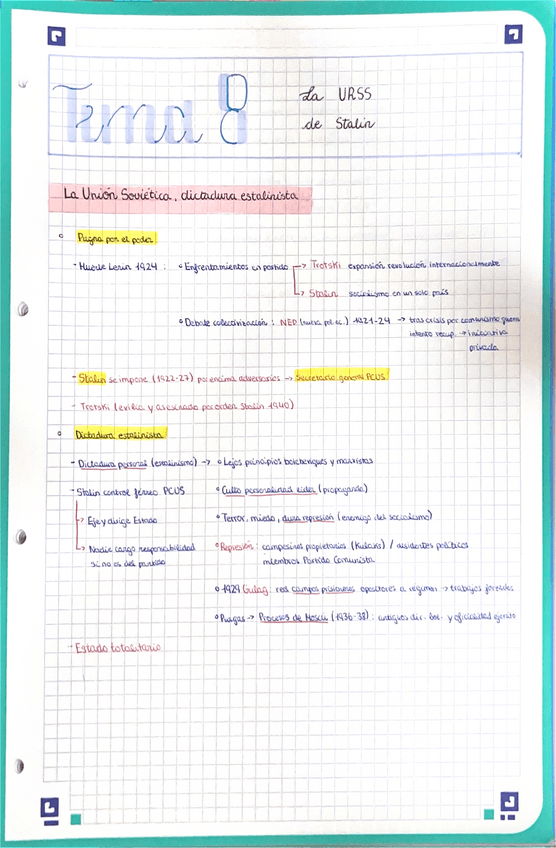 Tema 8
La URSS
de Stalin
La Unión Soviética, dictadura estalinista
Pugna por el poder
- Muerte Lenin 1924 : Enfrentamientos en partido → Trotski expansión revolución internacionalmente
→ Stalin socialismo en un solo país
Debate colectivización : NEP (nueva pol. ec.) 1921-24 → tras crisis por comunismo guerra
intento recup. → iniciativa
privada
- Stalin se impone (1922-27) por encima adversarios → Secretario general PCUS
- Trotski (exilia y asesinado por orden Stalin 1940)
Dictadura estalinista
- Dictadura personal (estalinismo) → Lejos principios bolcheviques y marxistas
- Stalin control férreo PCUS
Culto personalidad líder (propaganda)
→ Eje y dirige Estado
Terror, miedo, dura represión (enemigo del socialismo)
→ Nadie cargo responsabilidad
si no es del partido
Represión : campesinos propietarios (Kulaks) / disidentes políticos
miembros Partido Comunista
1929 Gulag : red campos prisioneros opositores a régimen → trabajos forzados
Purgas → Procesos de Moscú (1936-38) : antiguos dir. bol. y oficialidad ejército
- Estado totalitario